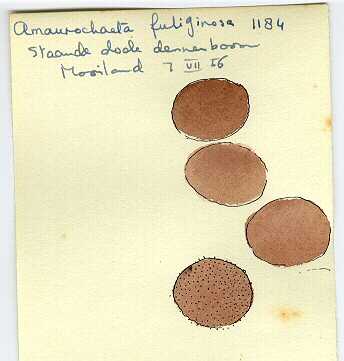 Amaurochaeta fuliginosa 1184
Staande doode dennenboom
Mooiland 7 VII 56